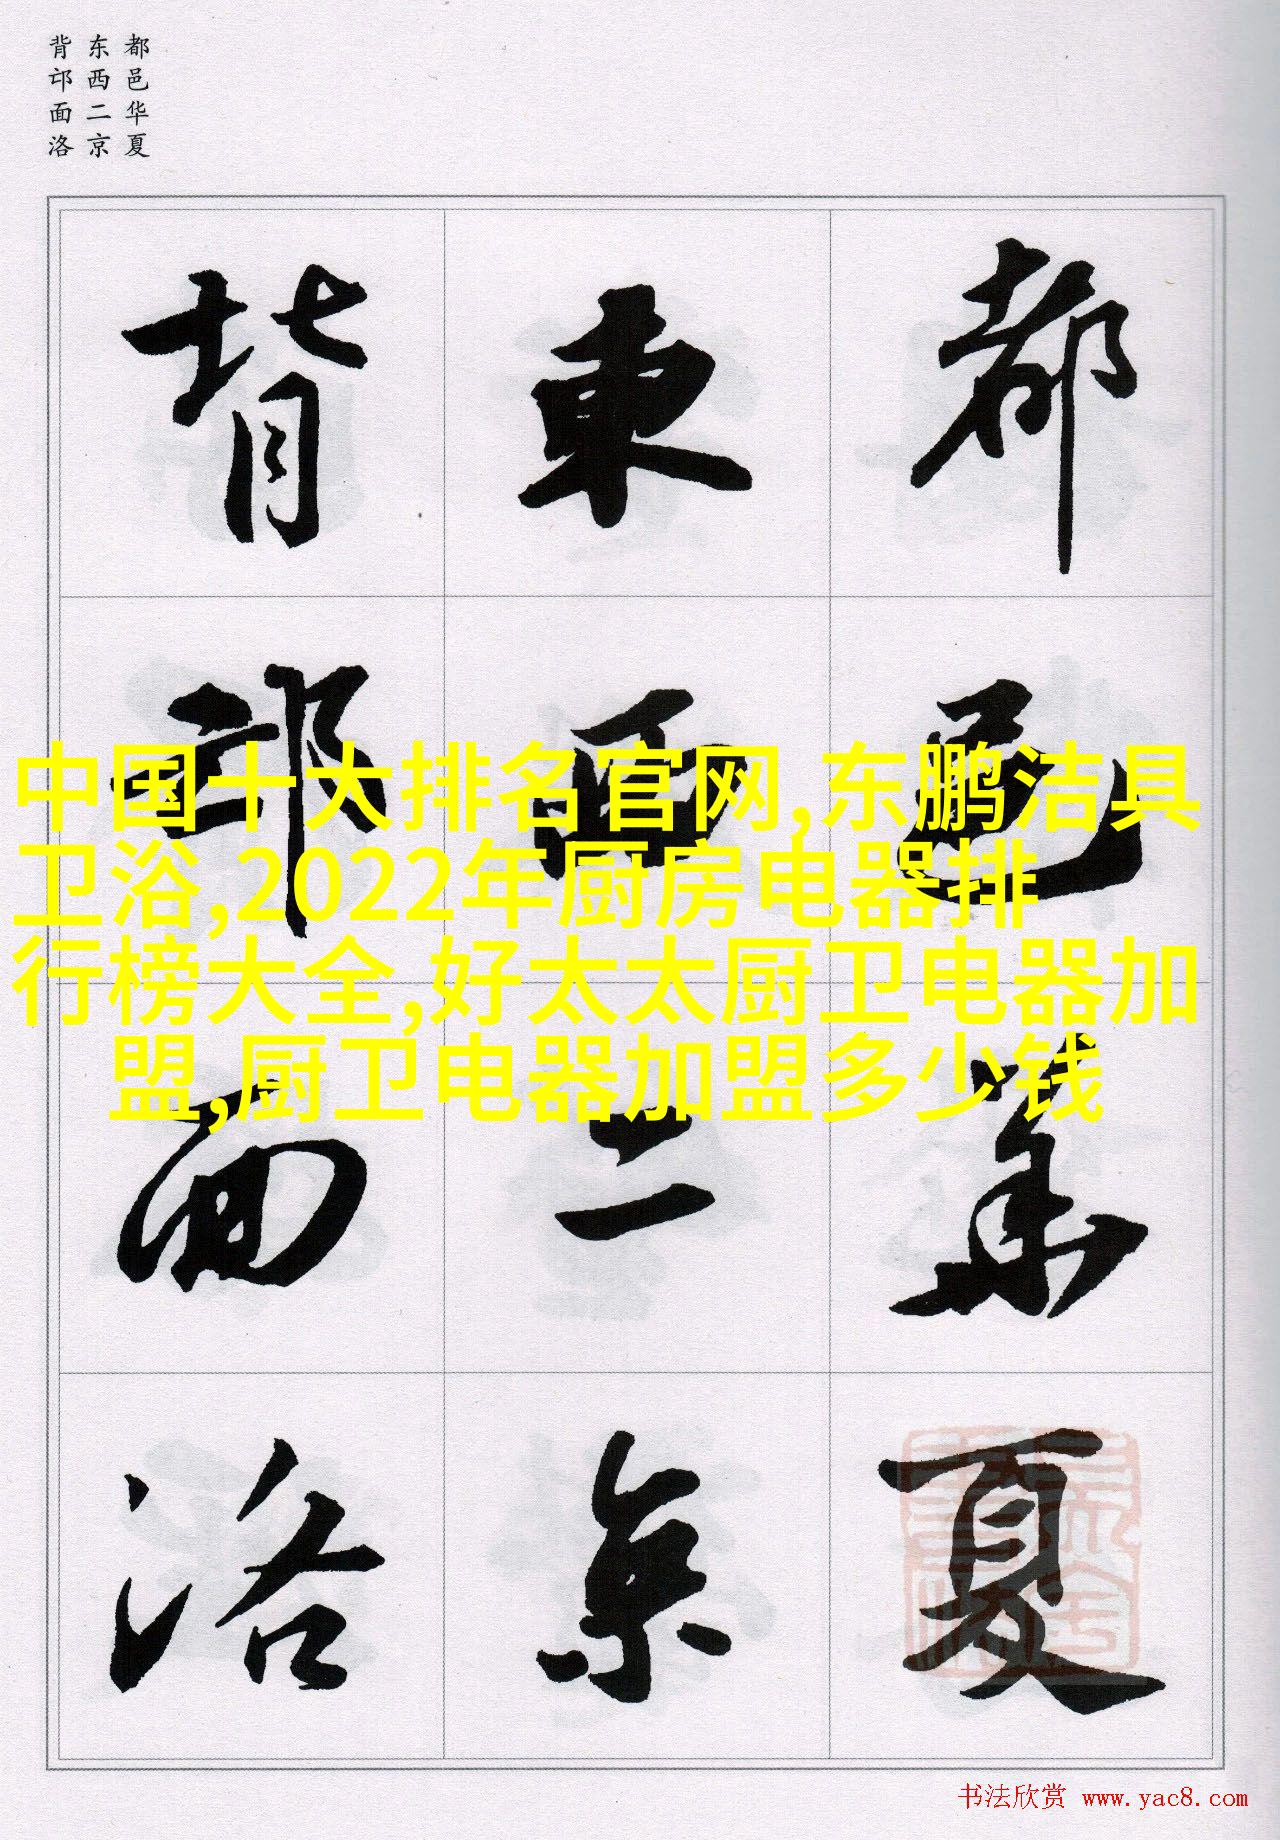 都邑华夏
东西二京
背邙面洛
都邑華夏
東西二京
背邙面洛
中国十大排名官网,东鹏洁具
卫浴,2022年厨房电器排
行榜大全,好太太厨卫电器加
盟,厨卫电器加盟多少钱
书法欣赏 www.yac8.com